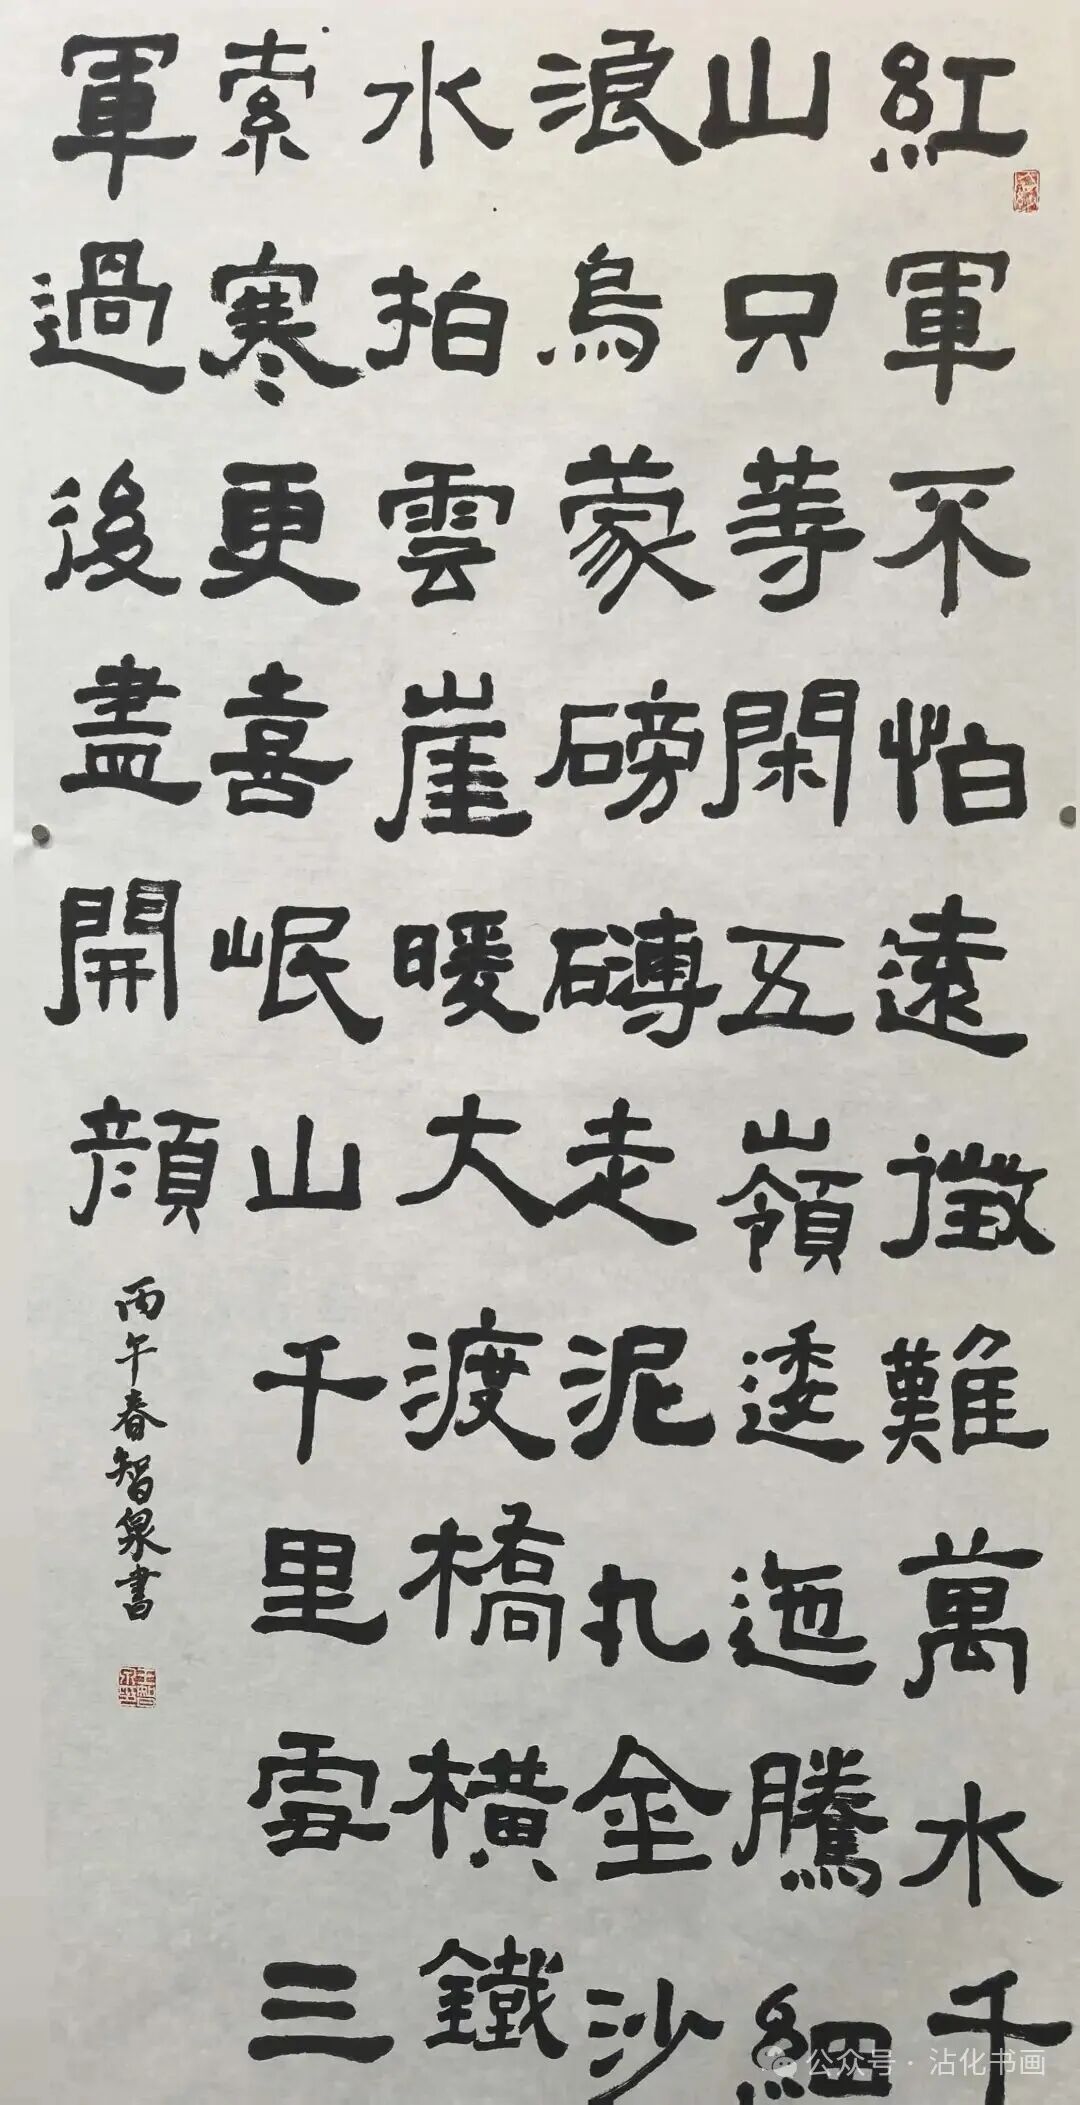 紅軍不怕遠徵難萬水千
山只等閑五嶺逶迤騰細
浪烏蒙磅礴走泥丸金沙
水拍雲崖暖大渡橋橫鐵
索寒更喜岷山千里雪三
軍過後盡開顔
丙午春智泉書
公众号 · 沾化书画